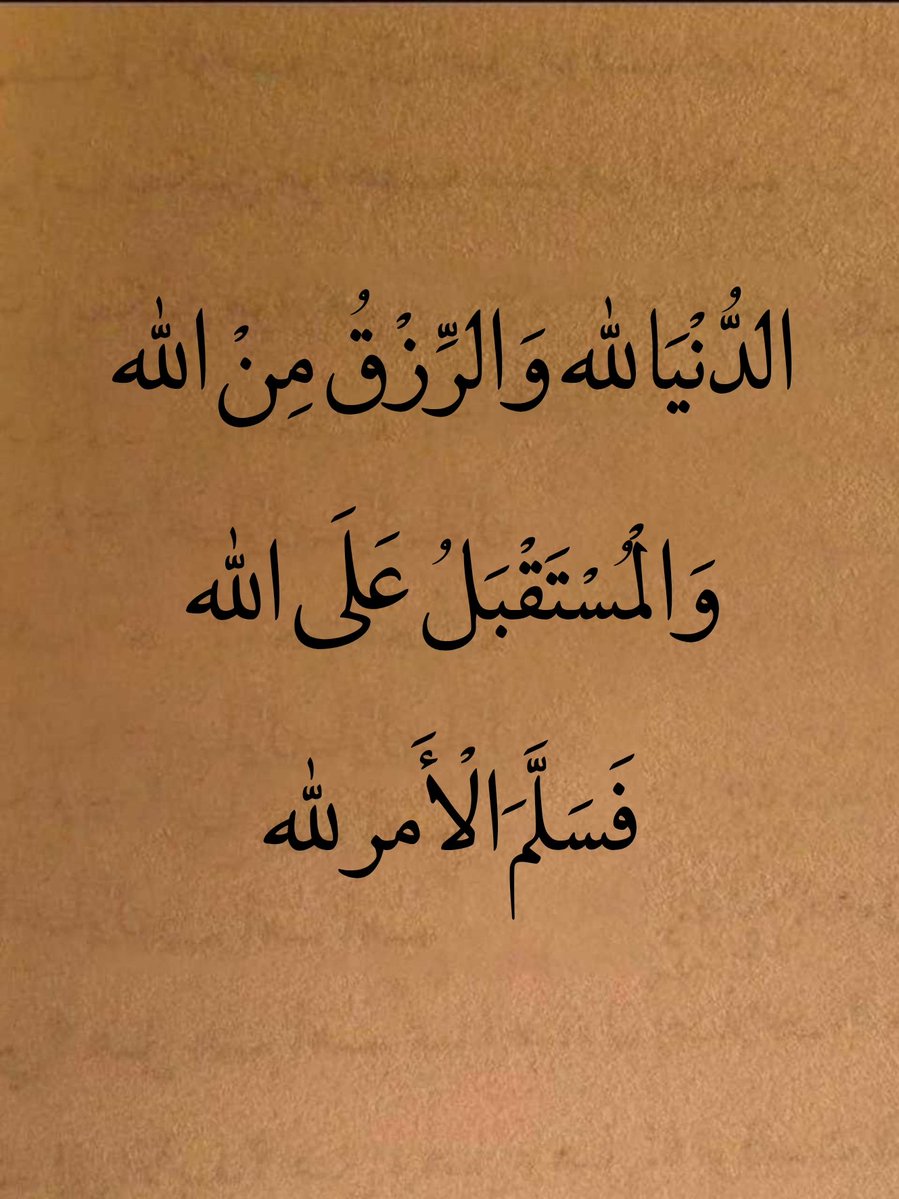 الدُّنْيَا لله وَالرِّزْقُ مِنْ الله
وَالْمُسْتَقْبَلُ عَلَى الله
فَسَلَّمَ الْأَمر لله